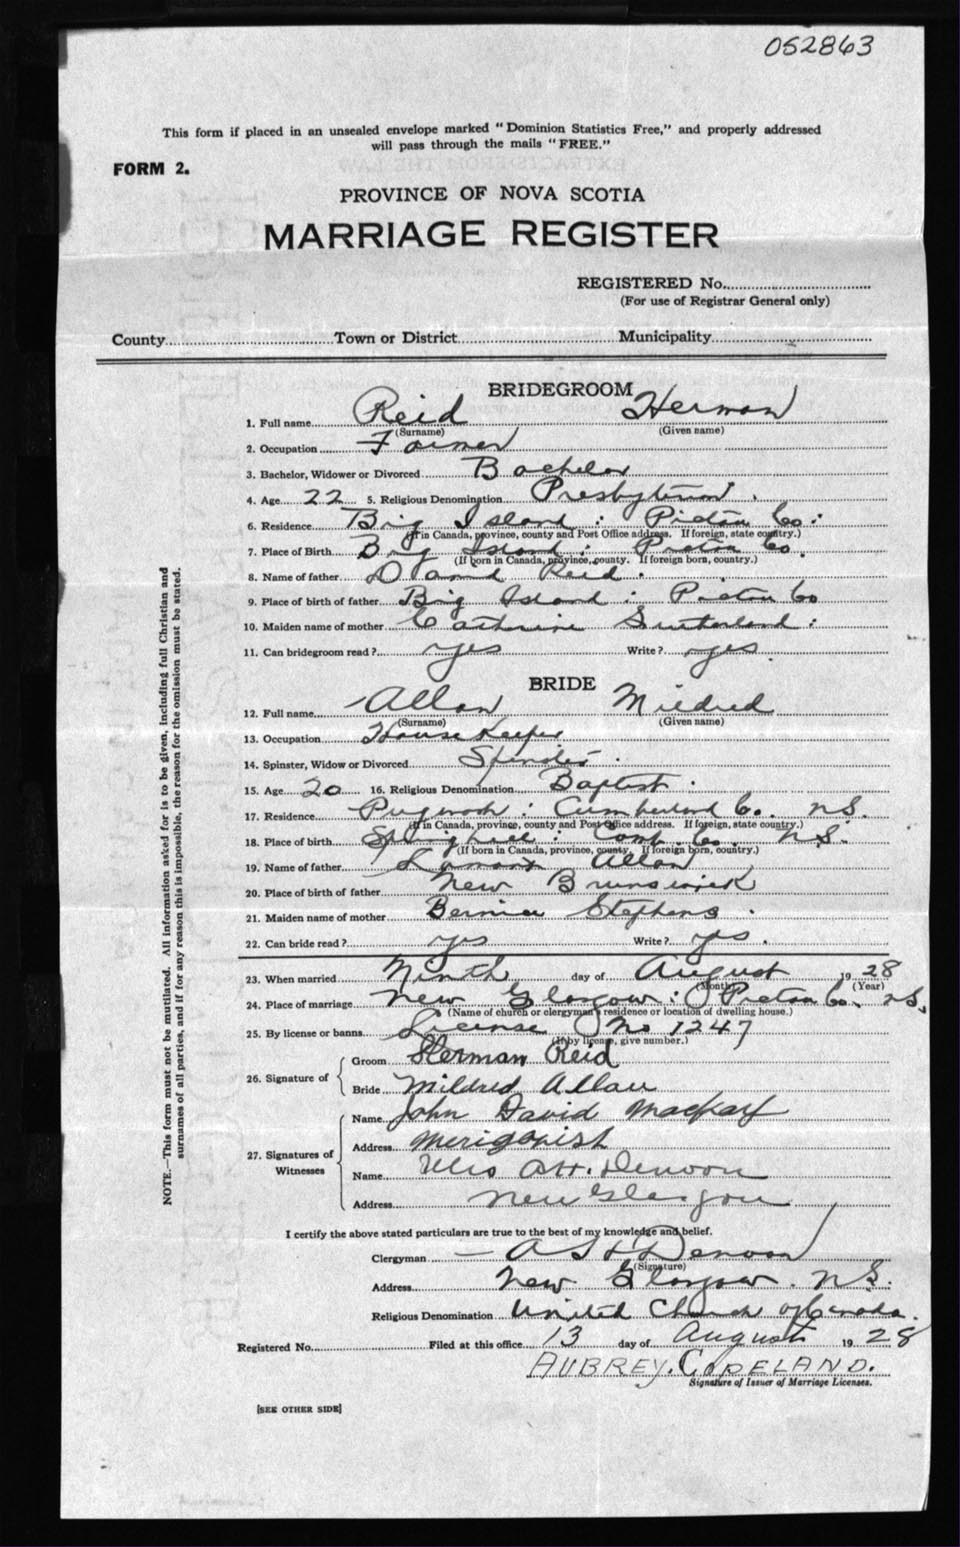 052863
This form if placed in an unsealed envelope marked "Dominion Statistics Free," and properly addressed
will pass through the mails "FREE."
FORM 2.
PROVINCE OF NOVA SCOTIA
MARRIAGE REGISTER
REGISTERED No.
(For use of Registrar General only)
County Town or District Municipality
BRIDEGROOM
1. Full name Reid Herman
(Surname) (Given name)
2. Occupation Farmer
3. Bachelor, Widower or Divorced Bachelor
4. Age 22 5. Religious Denomination Presbyterian.
6. Residence Big Island : Pictou Co :
(If in Canada, province, county and Post Office address. If foreign, state country.)
7. Place of Birth Big Island : Pictou Co.
(If born in Canada, province, county. If foreign born, country.)
8. Name of father David Reid.
9. Place of birth of father Big Island : Pictou Co
10. Maiden name of mother Catherine Sutherland :
11. Can bridegroom read? yes Write? yes.
BRIDE
12. Full name Allan Mildred
(Surname) (Given name)
13. Occupation House Keeper
14. Spinster, Widow or Divorced Spinster.
15. Age 20 16. Religious Denomination Baptist.
17. Residence Pugwash : Cumberland Co. N.S.
(If in Canada, province, county and Post Office address. If foreign, state country.)
18. Place of birth Springhill : Comb. Co. N.S.
(If born in Canada, province, county, If foreign born, country.)
19. Name of father Allan
20. Place of birth of father New Brunswick
21. Maiden name of mother Bernice Stephens.
22. Can bride read? yes Write? yes.
23. When married Ninth day of August 19 28
(Month) (Year)
24. Place of marriage New Glasgow : Pictou Co. N.S,
(Name of church or clergyman's residence or location of dwelling house.)
25. By license or banns License No 1247
(If by license, give number.)
26. Signature of
Groom Herman Reid
Bride Mildred Allan
27. Signatures of Witnesses
Name John David MacKay
Address Merigomish
Name Mrs A.H. Denoon
Address New Glasgow
I certify the above stated particulars are true to the best of my knowledge and belief.
Clergyman A H Denoon
(Signature)
Address New Glasgow. N.S.
Religious Denomination United Church of Canada.
Registered No. Filed at this office 13 day of August 19 28
AUBREY. COPELAND.
Signature of Issuer of Marriage Licenses.
[SEE OTHER SIDE]
NOTE.—This form must not be mutilated. All information asked for is to be given, including full Christian and
surnames of all parties, and if for any reason this is impossible, the reason for the omission must be stated.